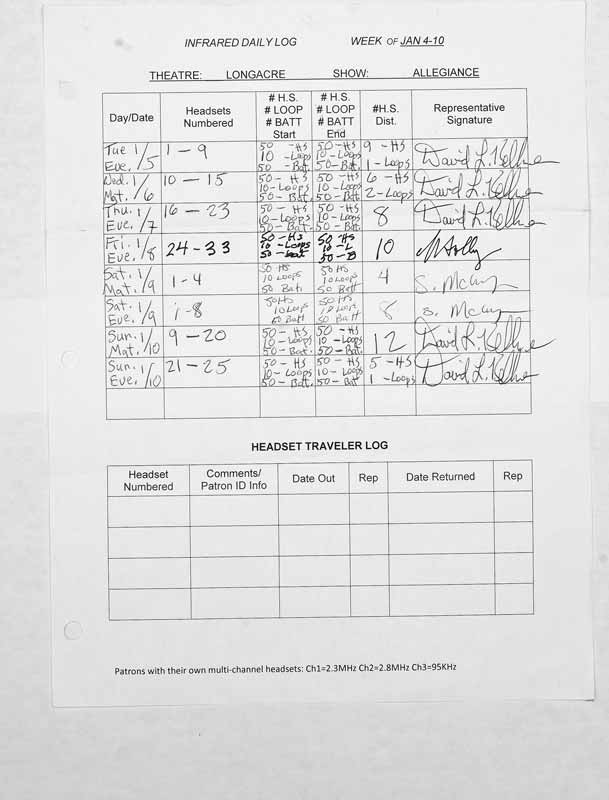 INFRARED DAILY LOG WEEK OF JAN 4-10
THEATRE: LONGACRE SHOW: ALLEGIANCE
Day/Date Headsets Numbered # H.S. # LOOP # BATT Start # H.S. # LOOP # BATT End #H.S. Dist. Representative Signature
Tue 1/5 Eve. 1-9 50 -HS 10 -Loops 50 -Batt. 50 -HS 10 -Loops 50 -Batt. 9 -HS 1-Loops David L.
Wed. 1/6 Mat. 10-15 50 - HS 10-Loops 50-Batt. 50 - HS 10-Loops 50-Batt. 6 -HS 2-Loops David L.
Thu. 1/7 Eve. 16-23 50 - HS 10-Loops 50-Batt. 50 - HS 10-Loops 50-Batt. 8 David L.
Fri. 1/8 Eve. 24-33 50 -HS 10 -Loops 50 -Bat. 50 -HS 10 -L 50 -B 10
Sat. 1/9 Mat. 1-4 50 HS 10 Loops 50 Batt 50 HS 10 Loops 50 Batt 4 S.
Sat. 1/9 Eve. 1-8 50 HS 10 Loops 50 Batt 50 HS 10 Loops 50 Batt 8 S.
Sun. 1/10 Mat. 9-20 50 - HS 10-Loops 50-Batt. 50 - HS 10-Loops 50-Batt. 12 David L.
Sun. 1/10 Eve. 21-25 50 - HS 10-Loops 50-Batt. 50 - HS 10-Loops 50-Batt 5 -HS 1 -Loops David L.
HEADSET TRAVELER LOG
Headset Numbered Comments/ Patron ID Info Date Out Rep Date Returned Rep
Patrons with their own multi-channel headsets: Ch1=2.3MHz Ch2=2.8MHz Ch3=95KHz